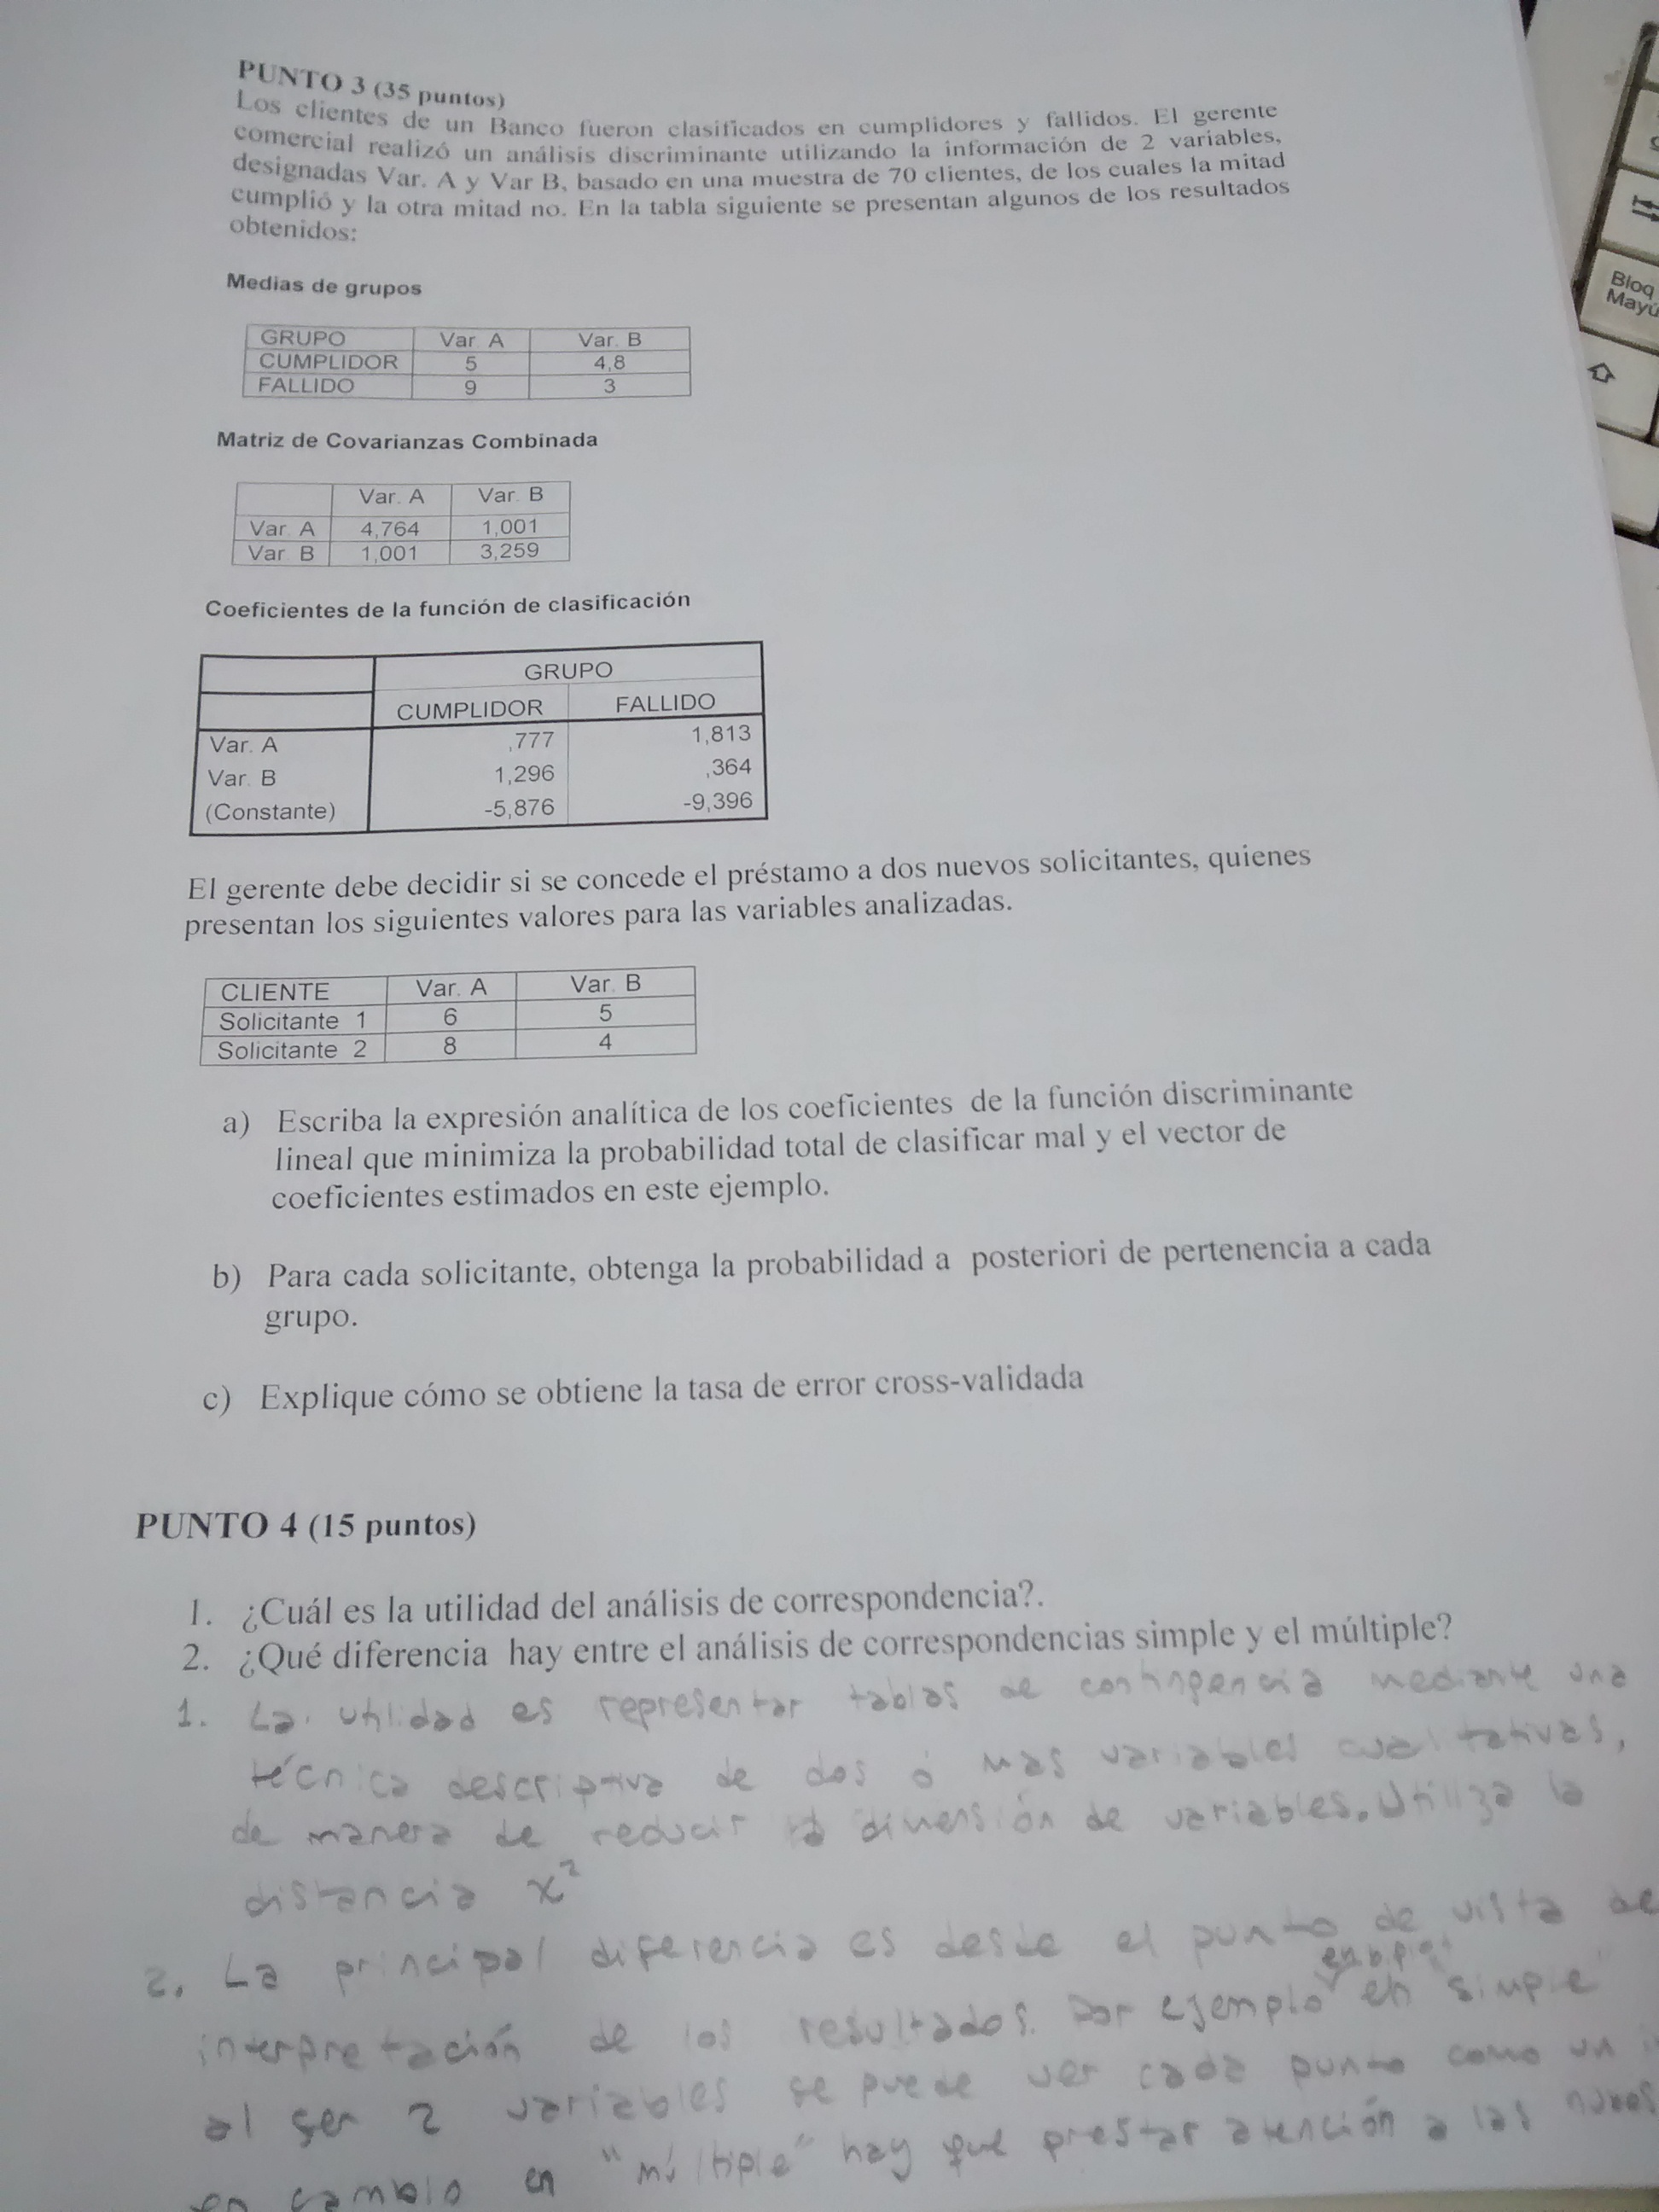 PUNTO 3 (35 puntos)
Los clientes de un Banco fueron clasificados en cumplidores y fallidos. El gerente
comercial realizó un análisis discriminante utilizando la información de 2 variables,
designadas Var. A y Var B, basado en una muestra de 70 clientes, de los cuales la mitad
cumplió y la otra mitad no. En la tabla siguiente se presentan algunos de los resultados
obtenidos:
Medias de grupos
GRUPO Var. A Var. B
CUMPLIDOR 5 4,8
FALLIDO 9 3
Matriz de Covarianzas Combinada
Var. A Var. B
Var. A 4,764 1,001
Var. B 1,001 3,259
Coeficientes de la función de clasificación
GRUPO
CUMPLIDOR FALLIDO
Var. A ,777 1,813
Var. B 1,296 ,364
(Constante) -5,876 -9,396
El gerente debe decidir si se concede el préstamo a dos nuevos solicitantes, quienes
presentan los siguientes valores para las variables analizadas.
CLIENTE Var. A Var. B
Solicitante 1 6 5
Solicitante 2 8 4
a) Escriba la expresión analítica de los coeficientes de la función discriminante
lineal que minimiza la probabilidad total de clasificar mal y el vector de
coeficientes estimados en este ejemplo.
b) Para cada solicitante, obtenga la probabilidad a posteriori de pertenencia a cada
grupo.
c) Explique cómo se obtiene la tasa de error cross-validada
PUNTO 4 (15 puntos)
1. ¿Cuál es la utilidad del análisis de correspondencia?.
2. ¿Qué diferencia hay entre el análisis de correspondencias simple y el múltiple?
1. La utilidad es representar tablas de contingencia mediante una
técnica descriptiva de dos ó mas variables cualitativas,
de manera de reducir la dimensión de variables. Utiliza la
distancia x²
2. La principal diferencia es desde el punto de vista de
interpretación de los resultados. Por ejemplo en "simple"
al ser 2 variables se puede ver cada punto como un
en cambio en "múltiple" hay que prestar atención a las nubes
Bloq
Mayú